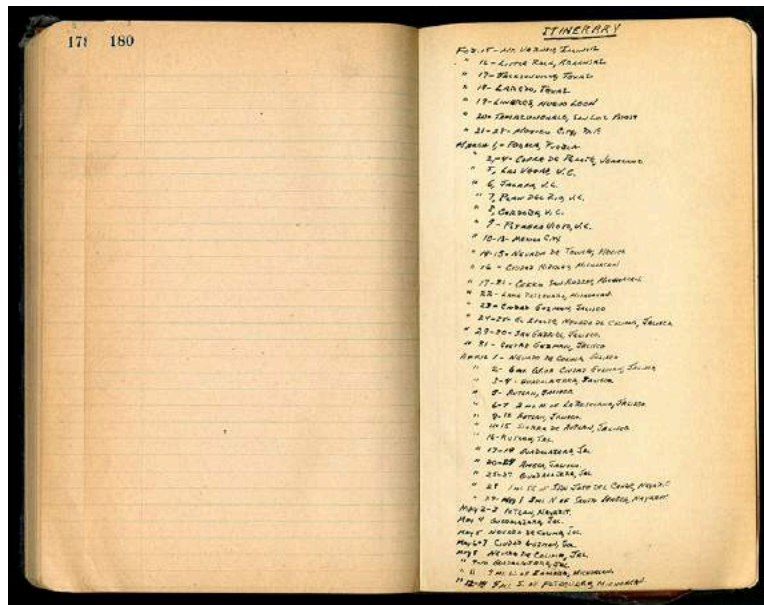 178 180
ITINERARY
Feb. 15 - Mt. Vernon, Illinois
" 16 - Little Rock, Arkansas
" 17 - Jacksonville, Texas
" 18 - Laredo, Texas
" 19 - Linares, Nuevo Leon
" 20 - Tamazunchale, San Luis Potosi
" 21-28 - Mexico City, D.F.
March 1, - Puebla, Puebla
" 2-4 - Cofre de Perote, Veracruz
" 5, Las Vigas, V.C.
" 6, Jalapa, V.C.
" 7, Plan Del Rio, V.C.
" 8, Cordoba, V.C.
" 9 - V.C.
" 10-13 - Mexico City
" 14-15 - Nevado de Toluca, Mexico
" 16 - Ciudad Hidalgo, Michoacan
" 17-21 - Cerro San Andres, Michoacan
" 22 - Lake Patzcuaro, Michoacan
" 23 - Ciudad Guzman, Jalisco
" 24-28 - Nevado de Colima, Jalisco
" 29-30 - San Gabriel, Jalisco
" 31 - Ciudad Guzman, Jalisco
April 1 - Nevado de Colima, Jalisco
" 2 - Ciudad Guzman, Jalisco
" 3-4 - Guadalajara, Jalisco
" 5 - Autlan, Jalisco
" 6-7 2 mi. N. of La Resolana, Jalisco
" 8-10 Autlan, Jalisco
" 11-15 Sierra de Autlan, Jalisco
" 16 - Autlan, Jal.
" 17-19 Guadalajara, Jal.
" 20-24 Ameca, Jalisco
" 25-27 Guadalajara, Jal.
" 28 1 mi. SE of San Jose del Conde, Nayarit
" 29 - May 1 3 mi. N of Nayarit
May 2-3 Nayarit.
May 4 Guadalajara, Jal.
May 5 Nevado de Colima, Jal.
May 6-7 Ciudad Guzman, Jal.
May 8 Nevado de Colima, Jal.
" 9-10 Guadalajara, Jal.
" 11 of Zamora, Michoacan
" 5 mi. S. of Patzcuaro, Michoacan